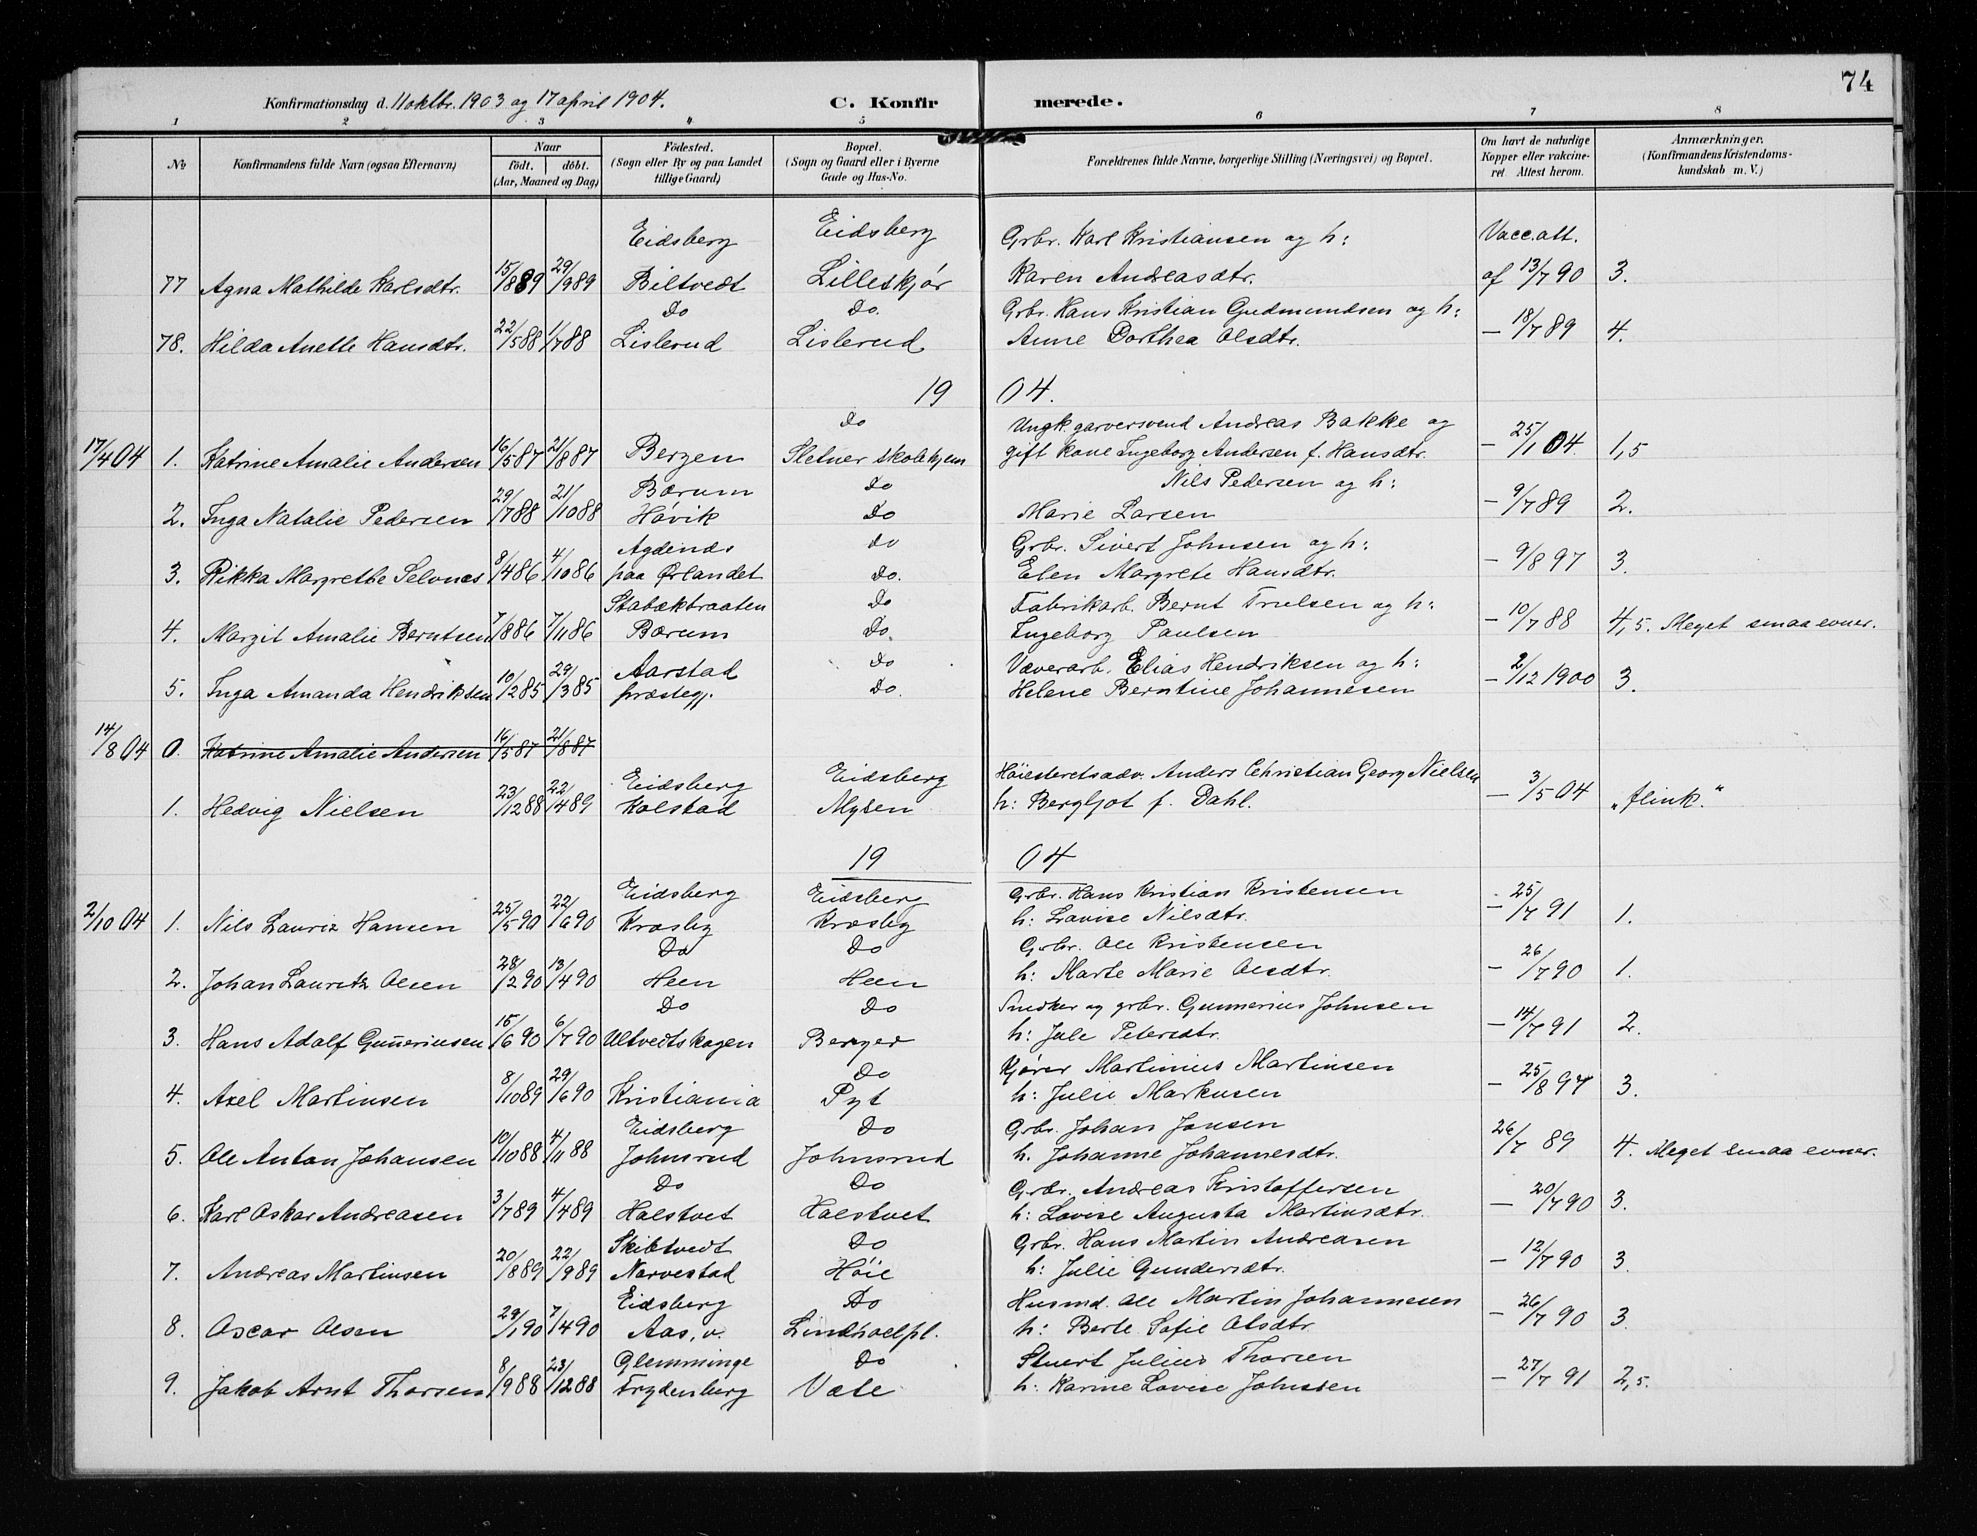 74
Konfirmationsdag d. 11 oktbr. 1903 og 17 april 1904. C. Konfirmerede.
1 2 3 4 5 6 7 8
No Konfirmandens fulde Navn (ogsaa Efternavn) Naar født. døbt. (Aar, Maaned og Dag) Födested. (Sogn eller By og paa Landet tillige Gaard) Bopæl. (Sogn og Gaard eller i Byerne Gade og Hus-No. Forældrenes fulde Navne, borgerlige Stilling (Næringsvei) og Bopæl. Om havt de naturlige Kopper eller vakcineret Attest herom. Anmærkninger. (Konfirmandens Kristendomskundskab m. V.)
Eidsberg Eidsberg Grbr. Karl Kristiansen og h: Vacc.att.
77 Agna Mathilde Karlsdtr. 15/8 89 29/9 89 Biltvedt Lilleskjør Karen Andreasdtr. af 13/7 90 3.
Do Do. Grbr. Hans Kristian Gudmundsen og h:
78. Hilda Anette Hansdtr. 22/5 88 1/7 88 Lislerud Lislerud Anne Dorthea Olsdtr. — 18/7 89 4.
19 04.
Do Ungk. garversvend Andreas Bakke og
17/4 04 1. Katrine Amalie Andersen 16/5 87 21/8 87 Bergen Sletner skolehjem gift kone Ingeborg Andersen f. Hansdtr. — 25/1 04. 1,5
Bærum Do Nils Pedersen og h:
2. Inga Natalie Pedersen 29/7 88 21/10 88 Høvik Do Marie Larsen — 9/7 89 2.
Agdenæs Do Grbr. Sivert Johnsen og h:
3. Rikka Margrethe Selvnes 8/4 86 4/10 86 paa Ørlandet Do. Elen Margrete Hansdtr. — 9/8 97 3.
Stabækbraaten Do Fabrikarb. Bernt Trulsen og h:
4. Margit Amalie Berntsen 7/8 86 7/11 86 Bærum Do. Ingeborg Paulsen — 10/7 88 4,5. Meget smaa evner.
Aarstad Do Væverarb. Elias Hendriksen og h:
5. Inga Amanda Hendriksen 10/12 85 29/3 85 præstegj. Do. Helene Berntine Johannesen — 2/12 1900 3.
14/8 04 0. Katrine Amalie Andersen 16/5 87 21/8 87
Eidsberg Eidsberg Høiesteretsadv. Anders Christian Georg Nielsen
1. Hedvig Nielsen 23/12 88 22/4 89 Kolstad Mysen h: Bergljot f. Dahl. — 3/5 04 "flink."
19 04
Eidsberg Eidsberg Grbr. Hans Kristian Kristensen
2/10 04 1. Nils Lauriz Hansen 25/5 90 22/6 90 Kræsby Kræsby h: Lovise Nilsdtr. — 25/7 91 1.
Do Do Grbr. Ole Kristensen
2. Johan Lauritz Olsen 28/2 90 13/4 90 Heen Heen h: Marte Marie Olsdtr. — 26/7 90 1.
Do Do Snedker og grbr. Gunnerius Johnsen
3. Hans Adolf Gun̄eriusen 15/6 90 6/7 90 Ultvedtskogen Berger h: Jule Petersdtr. — 14/7 91 2.
Do Kjører Martinius Martinsen
4. Axel Martinsen 8/10 89 29/6 90 Kristiania Pyt h: Julie Markusen — 25/8 97 3.
Eidsberg Do Grbr. Johan Jansen
5. Ole Anton Johansen 10/10 88 4/11 88 Johnsrud Johnsrud h. Johanne Johannesdtr. 26/7 89 4. Meget smaa evner.
Do Do Grbr. Andreas Kristoffersen
6. Karl Oskar Andreasen 3/7 89 4/4 89 Halstvet Halstvet h: Lovise Augusta Martinsdtr. — 20/7 90 3.
Skibtvedt Do Grbr. Hans Martin Andreasen
7. Andreas Martinsen 20/8 89 22/9 89 Narvestad Høie h: Julie Gundersdtr. — 12/7 90 3.
Eidsberg Do Husmd. Ole Martin Johannesen
8. Oscar Olsen 29/1 90 7/4 90 Aas, v. Lindhoelpl. h: Berte Sofie Olsdtr. — 26/7 90 3.
Glemminge Do Stuert Julius Thorsen
9. Jakob Arnt Thorsen 8/9 88 23/12 88 Frydenberg Vale h: Karine Lovise Johnsen — 27/7 91 2,5.